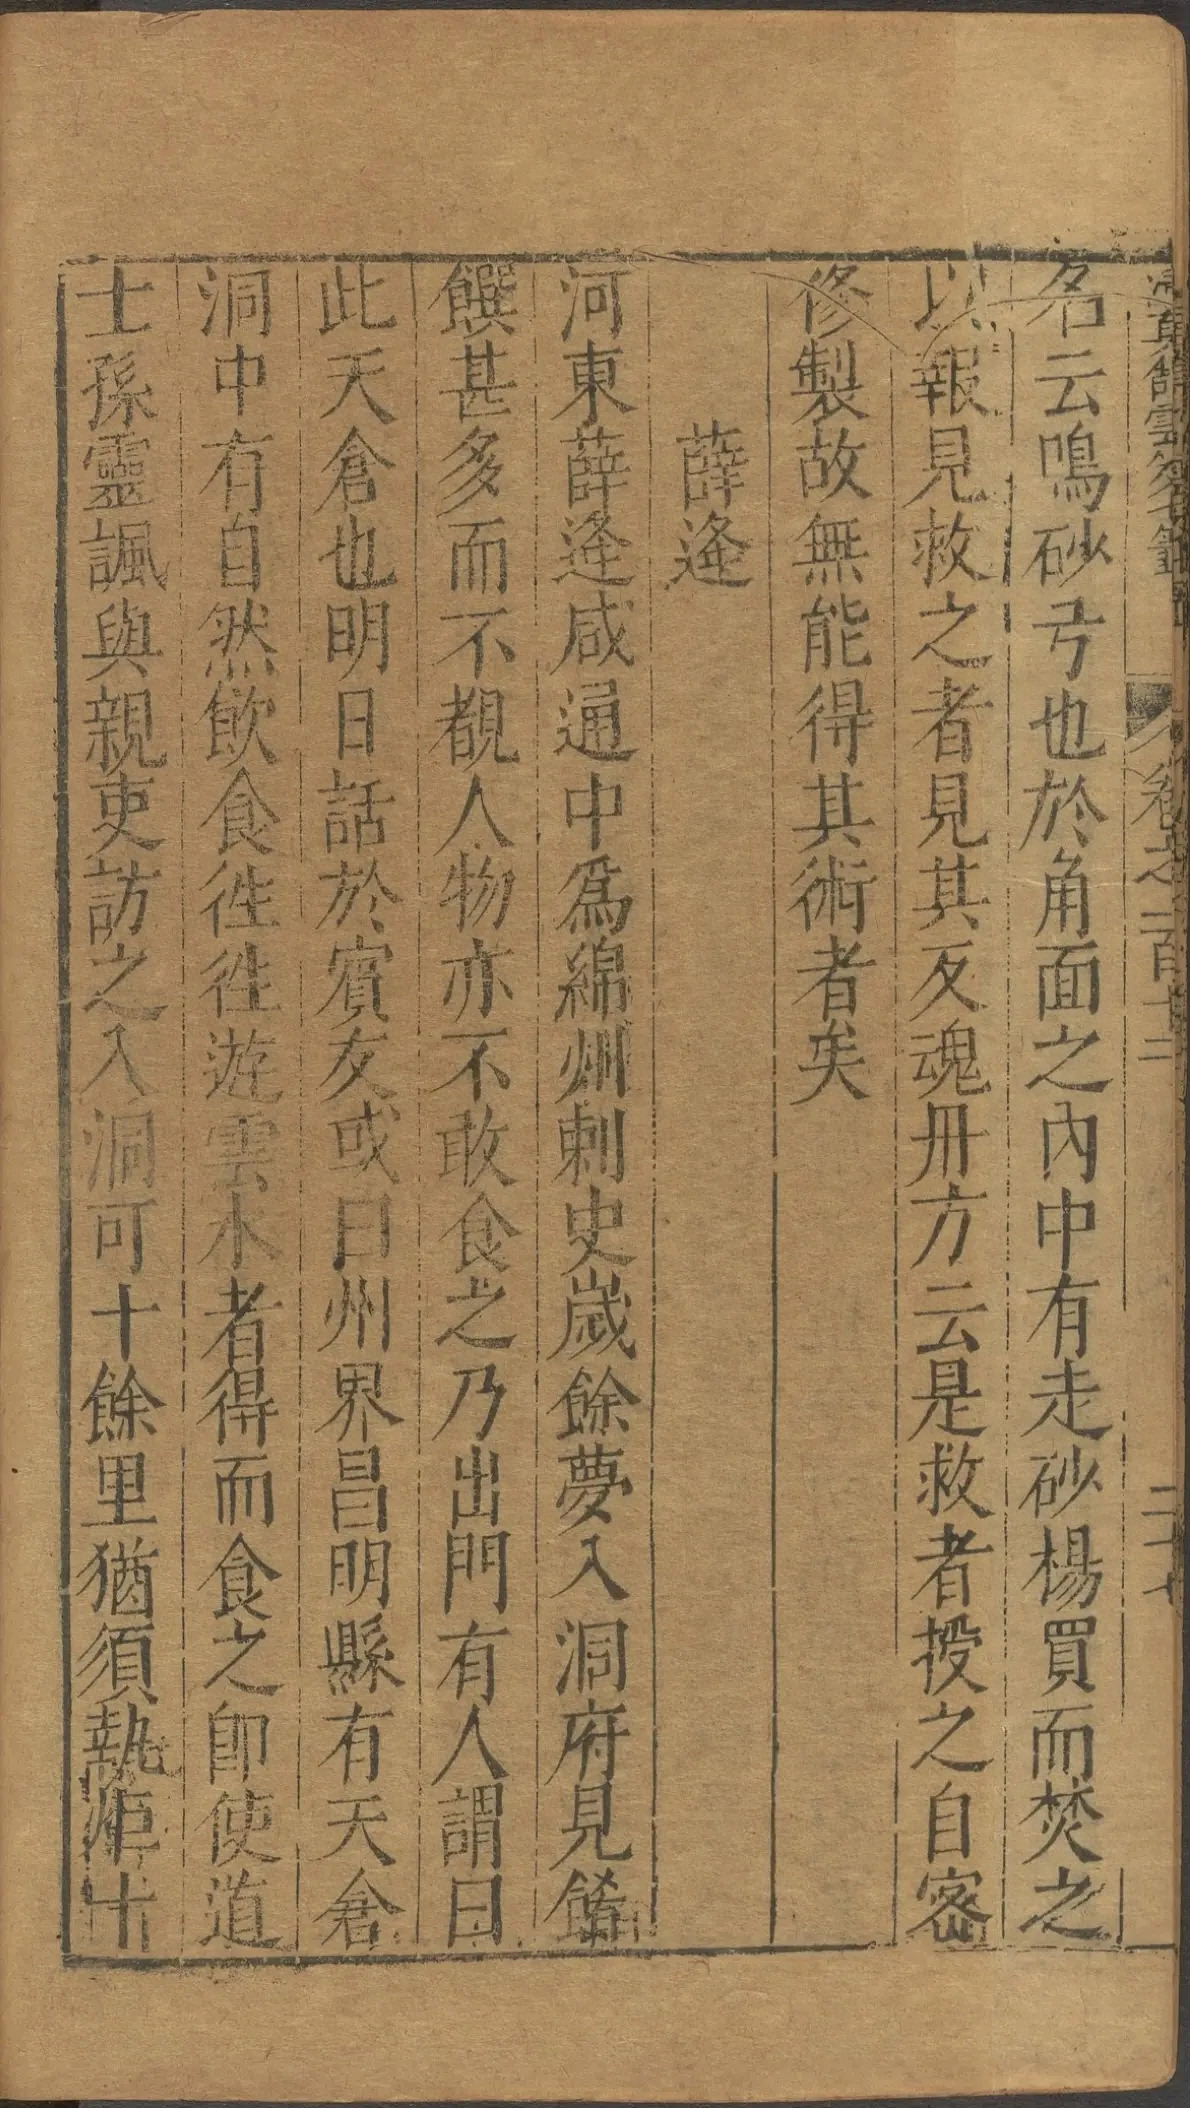 清真館雲笈七籤 卷之一百十二 二十七
名云鳴砂弓也於角面之內中有走砂楊買而焚之
以報見救之者見其反魂丹方云是救者授之自密
修製故無能得其術者矣
薛逢
河東薛逢咸通中爲綿州刺史歲餘夢入洞府見餚
饌甚多而不覩人物亦不敢食之乃出門有人謂曰
此天倉也明日話於賓友或曰州界昌明縣有天倉
洞中有自然飲食徃徃遊雲水者得而食之即使道
士孫靈諷與親吏訪之入洞可十餘里猶須執炬十